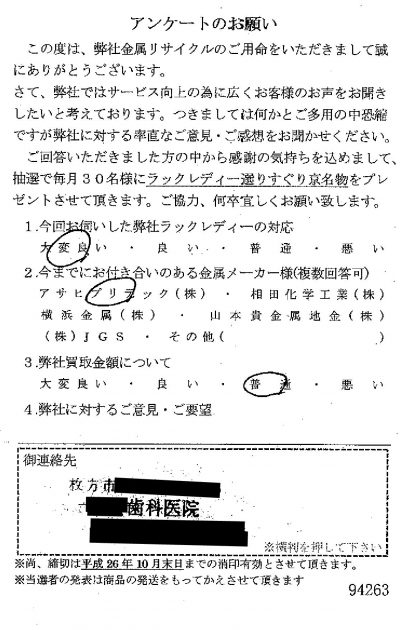 アンケートのお願い
この度は、弊社金属リサイクルのご用命をいただきまして誠
にありがとうございます。
さて、弊社ではサービス向上の為に広くお客様のお声をお聞き
したいと考えております。つきましては何かとご多用の中恐縮
ですが弊社に対する率直なご意見・ご感想をお聞かせください。
ご回答いただきました方の中から感謝の気持ちを込めまして、
抽選で毎月30名様にラックレディー選りすぐり京名物をプレ
ゼントさせて頂きます。ご協力、何卒宜しくお願い致します。
1.今回お伺いした弊社ラックレディーの対応
大変良い ・ 良い ・ 普通 ・ 悪い
2.今までにお付き合いのある金属メーカー様(複数回答可)
アサヒプリテック(株) ・ 相田化学工業(株)
横浜金属(株) ・ 山本貴金属地金(株)
(株)JGS ・ その他( )
3.弊社買取金額について
大変良い ・ 良い ・ 普通 ・ 悪い
4.弊社に対するご意見・ご要望
御連絡先
枚方市
歯科医院
※横判を押して下さい
※尚、締切は平成26年10月末日までの消印有効とさせて頂きます。
※当選者の発表は商品の発送をもってかえさせて頂きます
94263